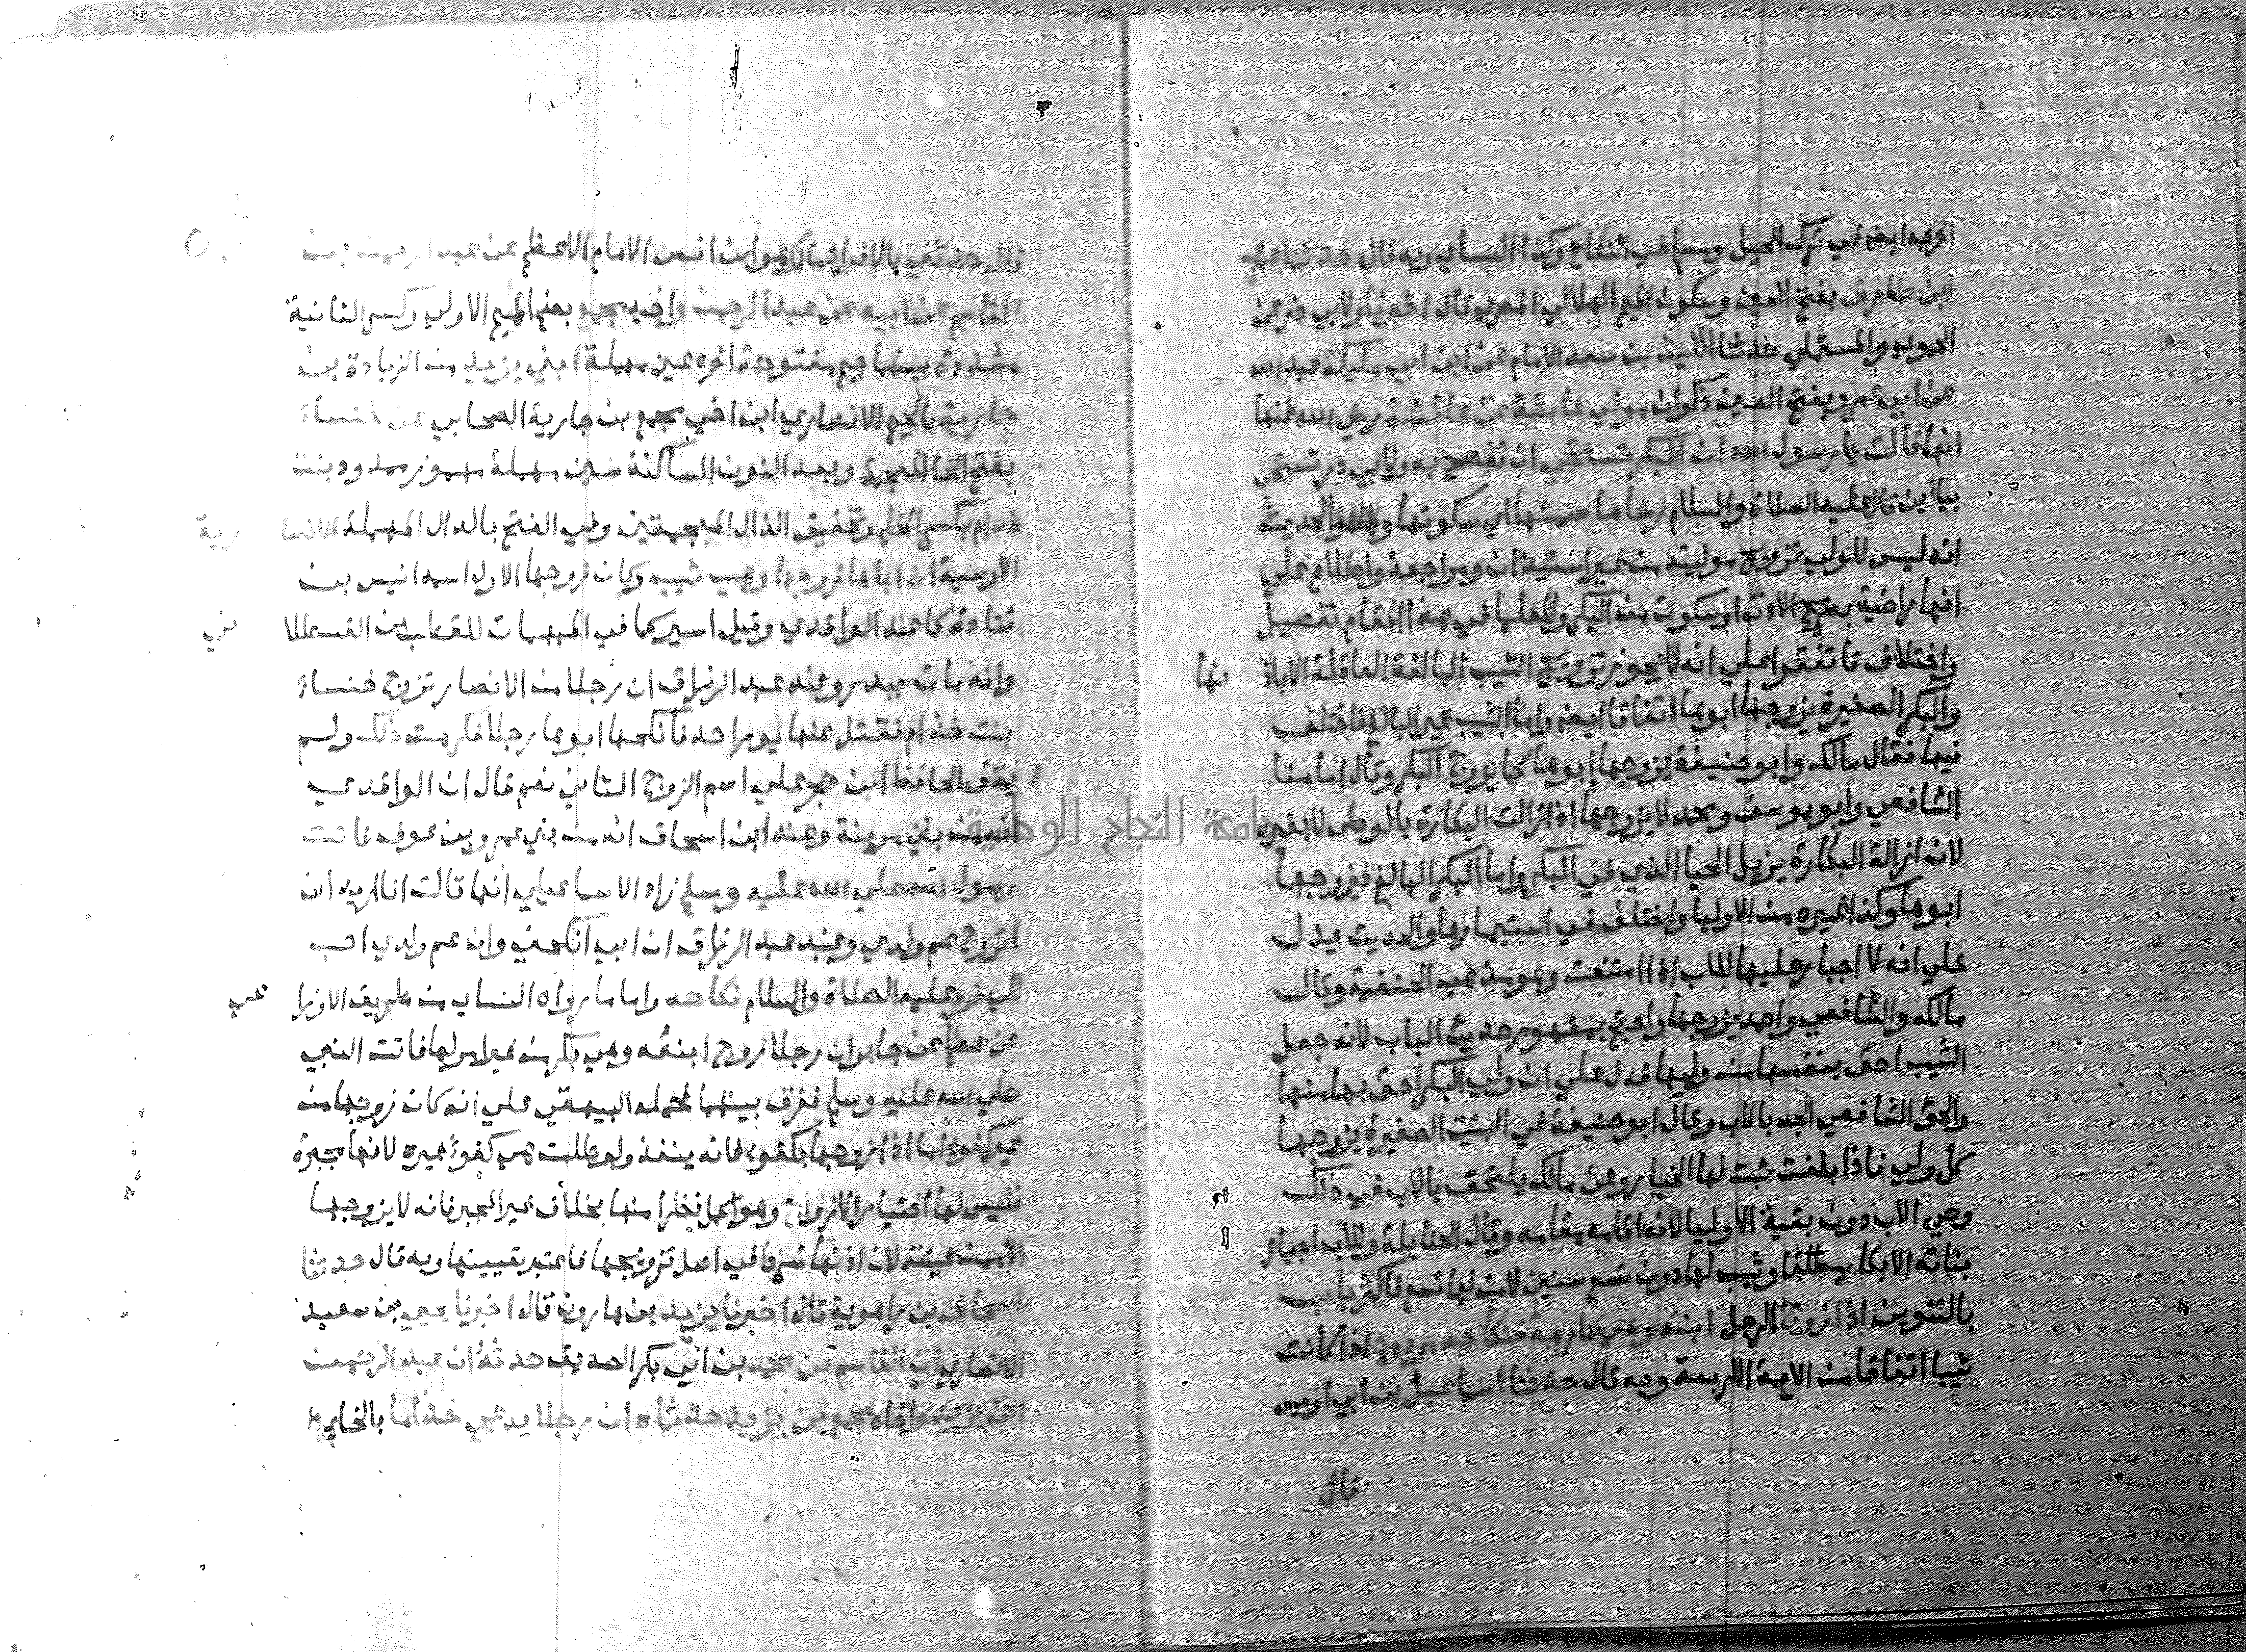 اخرجه ايضا في ترك الحيل ومسلم في النكاح وكذا النسائي وبه قال حدثنا عمرو
ابن طارق بفتح العين وسكون الميم الهلالي المصري قال اخبرنا ولابي ذر عن
الحموي والمستملي حدثنا الليث بن سعد الامام عن ابن ابي مليكة عبد الله
عن ابي عمرو بفتح العين ذكوان مولي عائشة عن عائشة رضي الله عنها
انها قالت يا رسول الله ان البكر تستحي ان تفصح به ولابي ذر تستحي
بيائين قال عليه الصلاة والسلام رضاها صمتها اي سكوتها وظاهر الحديث
انه ليس للولي تزويج موليته من غير استيذان ومراجعة واطلاع علي
انها راضية بصريح الاذن او سكوت من البكر وللعلما في هذا المقام تفصيل
واختلاف فاتفقوا علي انه لا يجوز تزويج الثيب البالغة العاقلة الا باذ نها
والبكر الصغيرة يزوجها ابوها اتفاقا ايضا واما الثيب غير البالغ فاختلف
فيها فقال مالك وابو حنيفة يزوجها ابوها كما يزوج البكر وقال امامنا
الشافعي وابو يوسف ومحمد لا يزوجها اذا زالت البكارة بالوطي لا بغيره
لان ازالة البكارة يزيل الحيا الذي في البكر واما البكر البالغ فيزوجها
ابوها وكذا غيره من الاوليا واختلف في استيمارها والحديث يدل
علي انه لا اجبار عليها للاب اذا امتنعت وهو مذهب الحنفية وقال
مالك والشافعي واحمد يزوجها واحتج بمفهوم حديث الباب لانه جعل
الثيب احق بنفسها من وليها فدل علي ان ولي البكر احق بها منها
والحق الشافعي الجد بالاب وقال ابو حنيفة في البنت الصغيرة يزوجها
كل ولي فاذا بلغت ثبت لها الخيار وعن مالك يلتحق بالاب في ذلك
وصي الاب دون بقية الاوليا لانه اقامه مقامه وقال الحنابلة وللاب اجبار
بناته الابكار مطلقا وثيب لها دون تسع سنين لا من لها تسع فاكثر باب
بالتنوين اذا زوج الرجل ابنته وهي كارهة فنكاحه مردود اذا كانت
ثيبا اتفاقا من الايمة الاربعة وبه قال حدثنا اسماعيل بن ابي اويس
قال
قال حدثني بالافراد مالك هو ابن انس الامام الاعظم عن عبد الرحمن بن
القاسم عن ابيه عن عبد الرحمن واخيه مجمع بضم الميم الاولي وكسر الثانية
مشددة بينهما جيم مفتوحة اخره عين مهملة ابني يزيد من الزيادة بن
جارية بالجيم الانصاري ابن اخي مجمع بن جارية الصحابي عن خنساء
بفتح الخا المعجمة وبعد النون الساكنة سين مهملة مهموز ممدود بنت
خذام بكسر الخاء وتخفيف الذال المعجمتين وفي الفتح بالدال المهملة الانصا رية
الاوسية ان اباها زوجها وهي ثيب وكان زوجها الاول اسمه انيس بن
قتادة كما عند الواقدي وقيل اسير كما في المبهمات للقطب بن القسطلا ني
وانه مات ببدر وعند عبد الرزاق ان رجلا من الانصار تزوج خنساء
بنت خذام فقتل عنها يوم احد فانكحها ابوها رجلا فكرهت ذلك ولم
يقف الحافظ ابن حجر علي اسم الزوج الثاني نعم قال ان الواقدي
انه من بني مزينة وعند ابن اسحاق انه من بني عمرو بن عوف فاتت
رسول الله صلي الله عليه وسلم زاد الاسماعيلي انها قالت انا اريد ان
اتزوج عم ولدي وعند عبد الرزاق ان ابي انكحني وان عم ولدي احب
الي فرد عليه الصلاة والسلام نكاحه واما ما رواه النساي من طريق الاوزا عي
عن عطا عن جابر ان رجلا زوج ابنته وهي بكر من غير امرها فاتت النبي
صلي الله عليه وسلم ففرق بينهما فحمله البيهقي علي انه كان زوجها من
غير كفوء اما اذا زوجها بكفوء فانه ينفذ ولو طلبت هي كفوا غيره لانها مجبرة
فليس لها اختيار الازواج وهو اكمل نظرا منها بخلاف غير المجبر فانه لا يزوجها
الا ممن عينته لان اذنها شرط في اصل تزويجها فاعتبر تعيينها وبه قال حدثنا
اسحاق بن راهوية قال اخبرنا يزيد بن هارون قال اخبرنا يحيي بن سعيد
الانصاري ان القاسم بن محمد بن ابي بكر الصديق حدثه ان عبد الرحمن
ابن يزيد واخاه مجمع بن يزيد حدثاه ان رجلا يدعي خذاما بالخاء
جامعة النجاح الوطنية